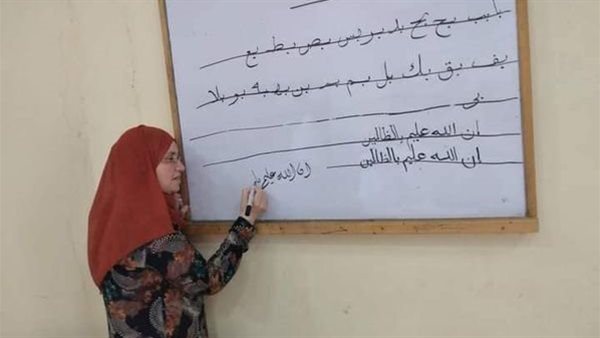 با بب بج بح بد بر بس بص بط بع
بف بق بك بل بم بن بهبه بو بلا
بى
ان الله عليم بالظالمين
ان الله عليم بالظالمين
ان الله عليم